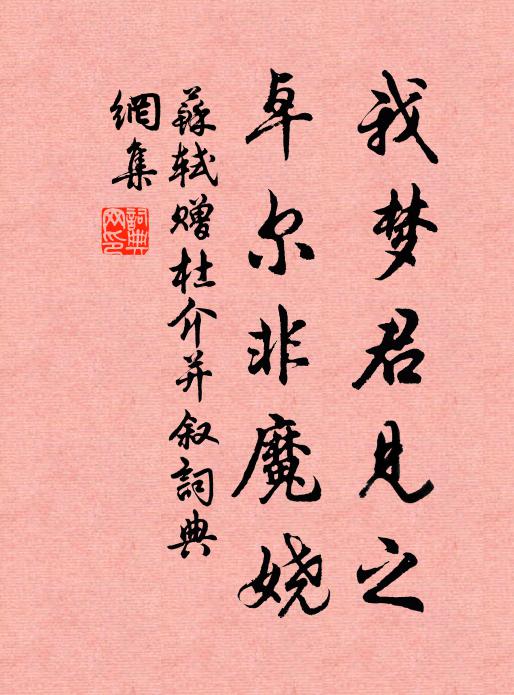 我梦君见之
卓尔非魔娆
蘇轼赠杜介并叙詞典
網集
詞典网印